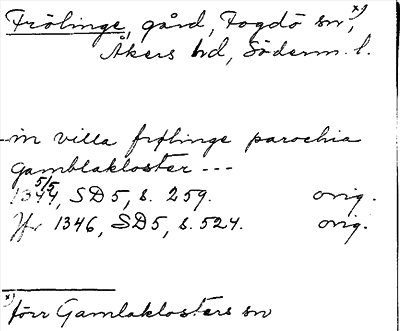 Frölinge, gård, Fogdö sn x),
Åkers hd, Söderm. l.
in villa frølinge parochia
gamblakloster ---
5/5
1344, SD5, s. 259. orig.
Jfr 1346, SD5, s. 524. orig.
x) förr Gamlaklosters sn